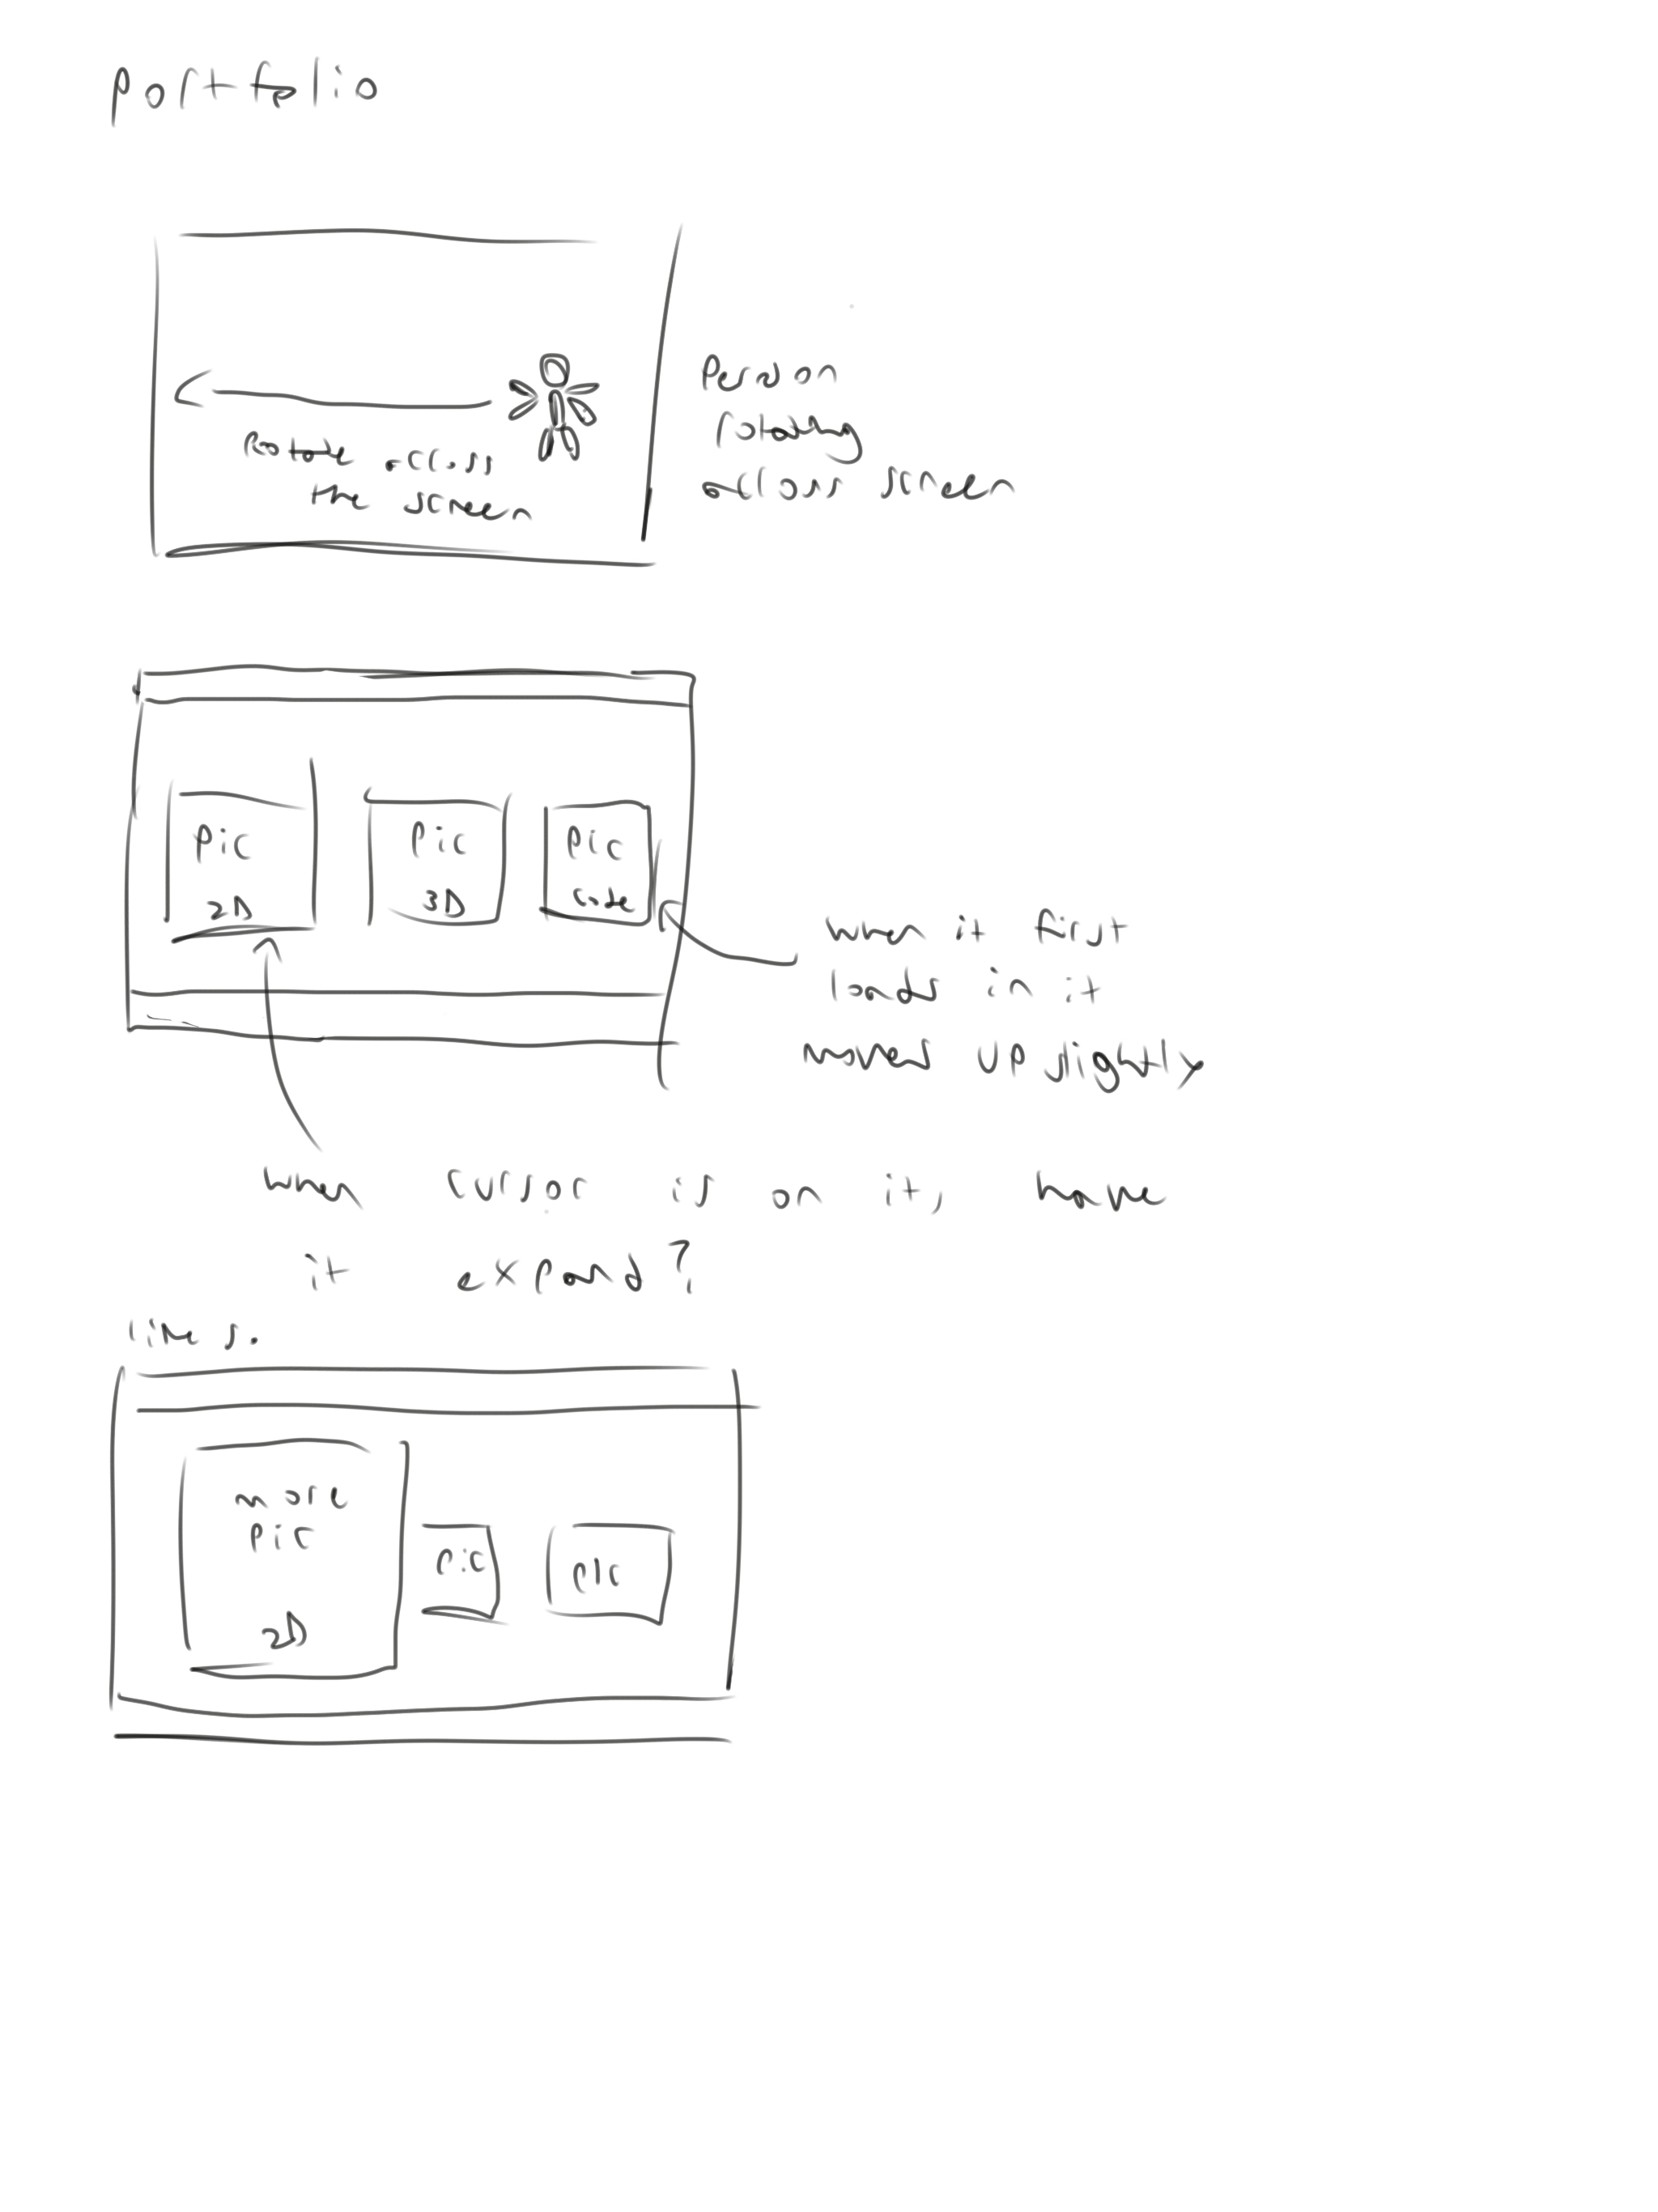 portfolio
Person
rotating
across screen
Rotate across
the screen
Pic
2D
Pic
3D
Pic
Code
when it first
loads in it
moves up slightly
when cursor is on it, have
it expand?
like s.
more
pic
2D
pic
pic